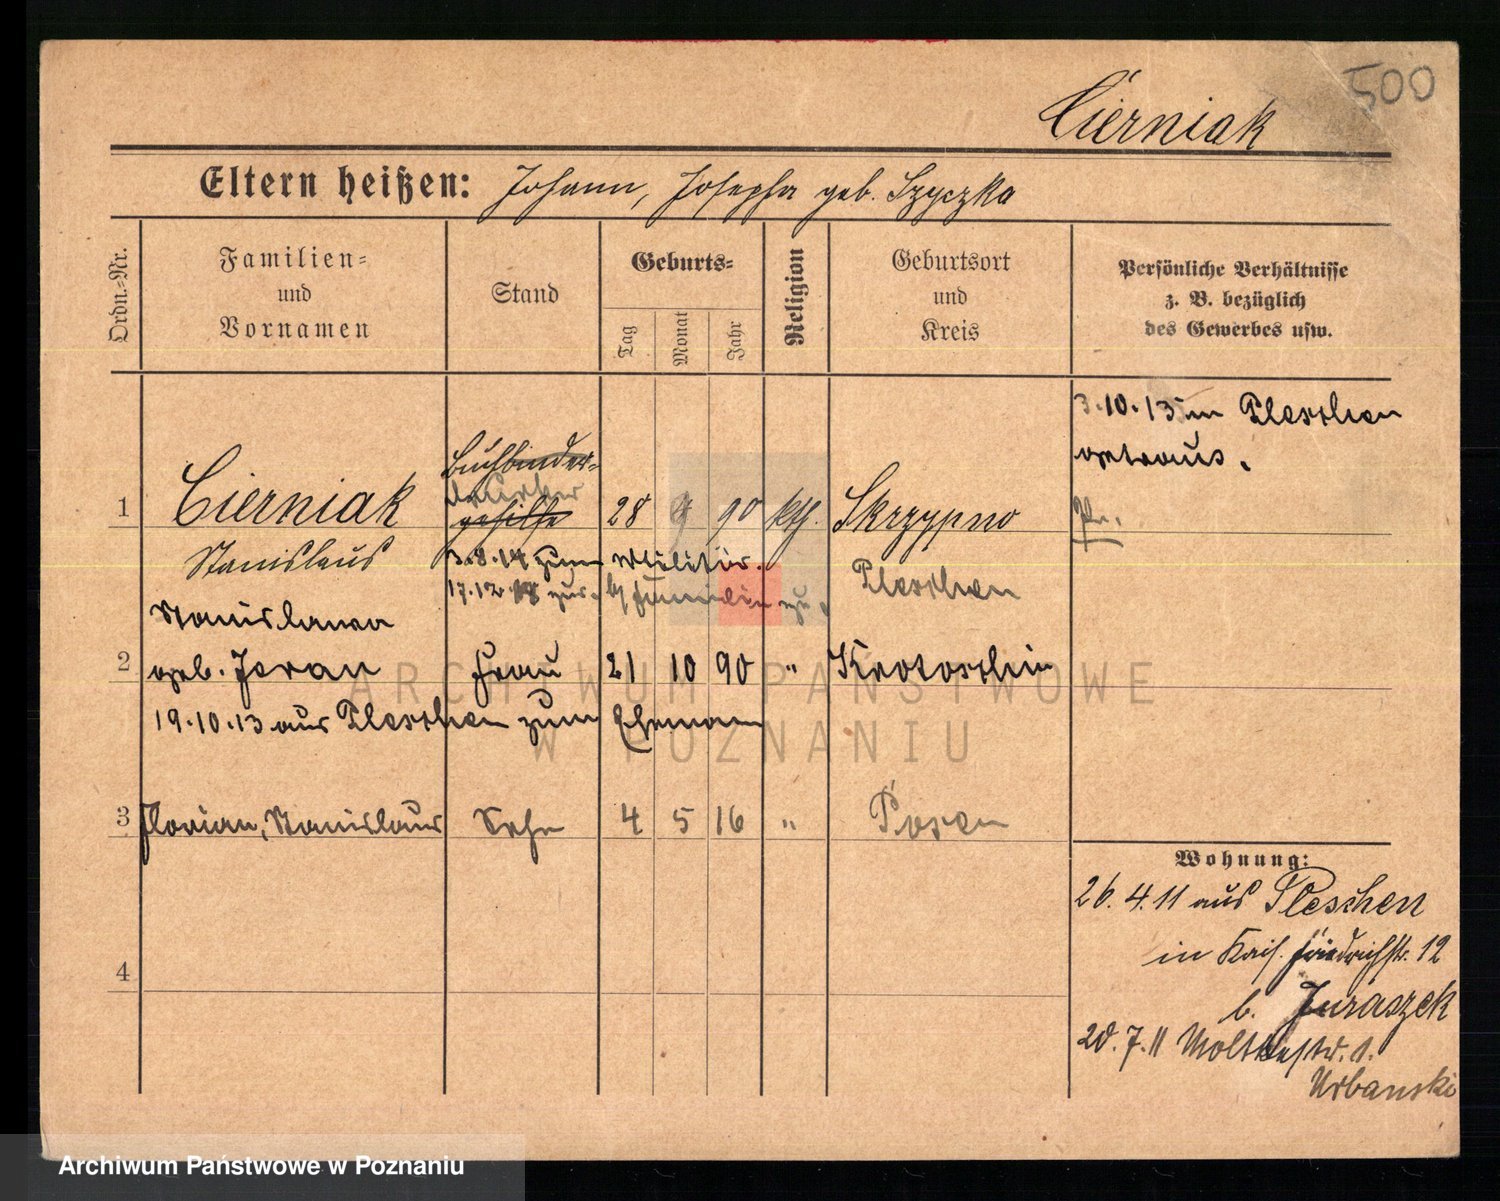 500
Cierniak
Eltern heißen: Johann, Josepha geb. Szyczka
Ordn.=Nr.
Familien=
und
Vornamen
Stand
Geburts=
Tag
Monat
Jahr
Religion
Geburtsort
und
Kreis
Persönliche Verhältnisse
z. B. bezüglich
des Gewerbes usw.
3.10.13 in Pleschen
getraut.
Pr.
1 Cierniak Buchbinder= 28 9 90 kth. Skrzypno
drucker
gehilfe
Stanislaus 3.8.14 zum Militär. Pleschen
17.12.18 zur. b/ Familie
Stanislawa
2 geb. Joran Frau 21 10 90 " Krotoschin
19.10.13 aus Pleschen zum Ehemann
3 Florian, Stanislaus Sohn 4 5 16 " Posen
4
Wohnung:
26.4.11 aus Pleschen
in Kais. Friedrichstr. 12
b. Juraszek
20.7.11 Moltkestr. 1.
Urbanski
ARCHIWUM PAŃSTWOWE
W POZNANIU
Archiwum Państwowe w Poznaniu